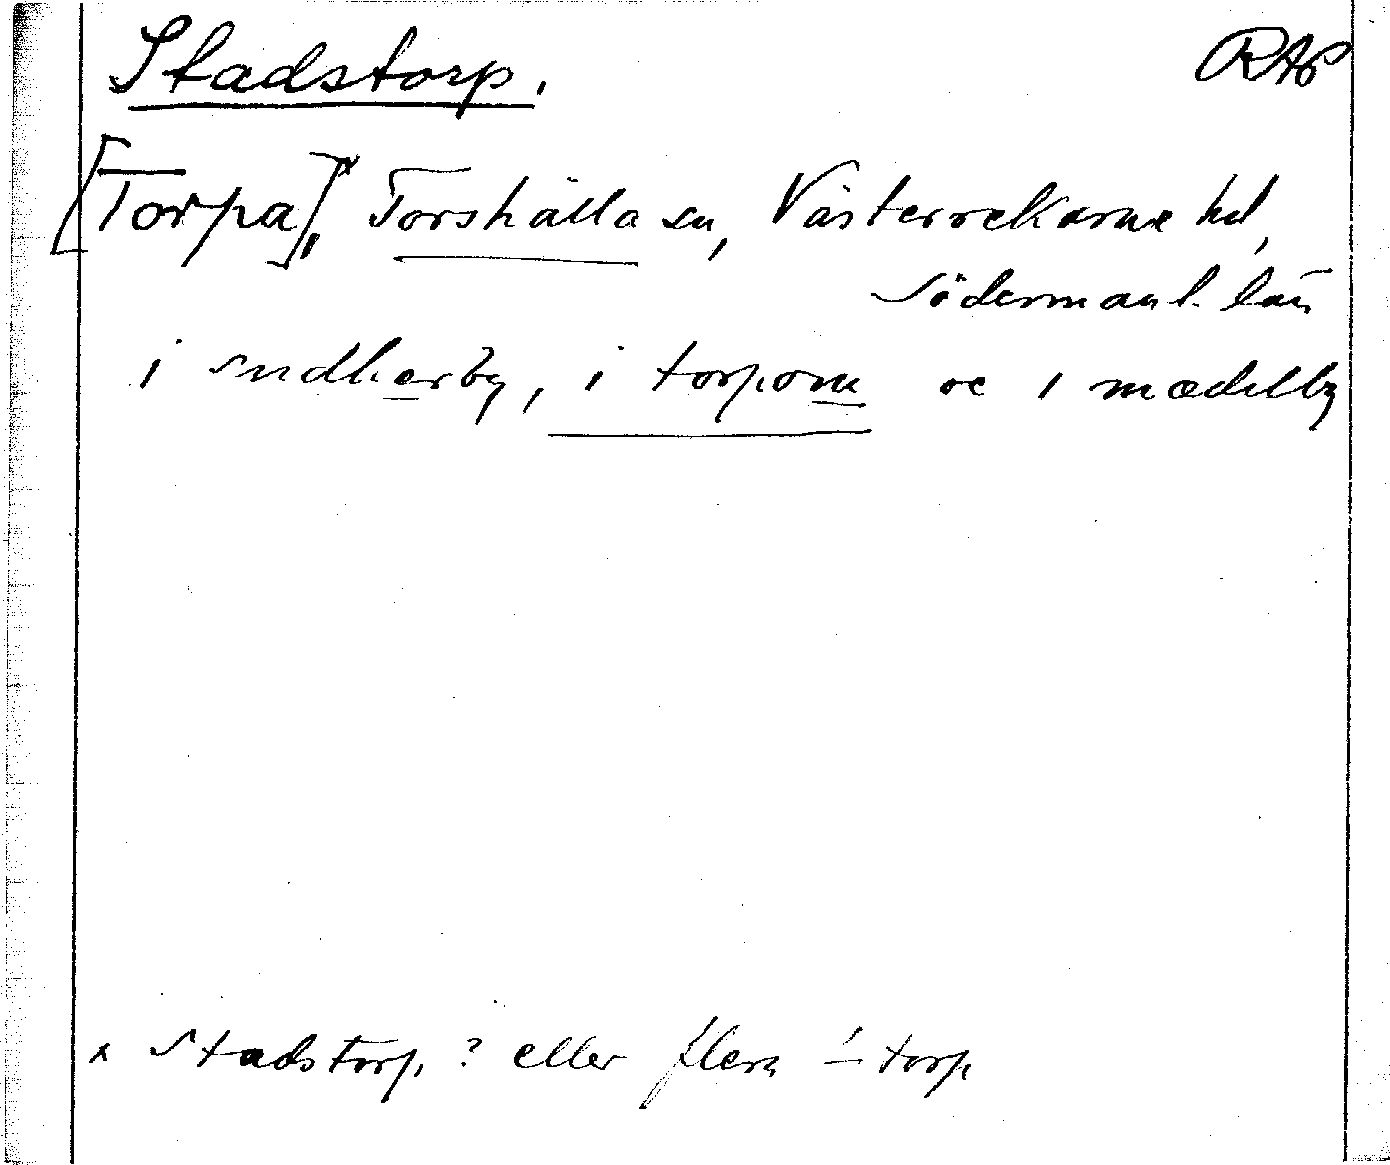 Stadstorp. RAp
[Torpa]x, Torshälla sn, Västerrekarne hd,
Södermanl. län
i sudherby, i torpom oc i mædelby
x Stadstorp ? eller flera -torp